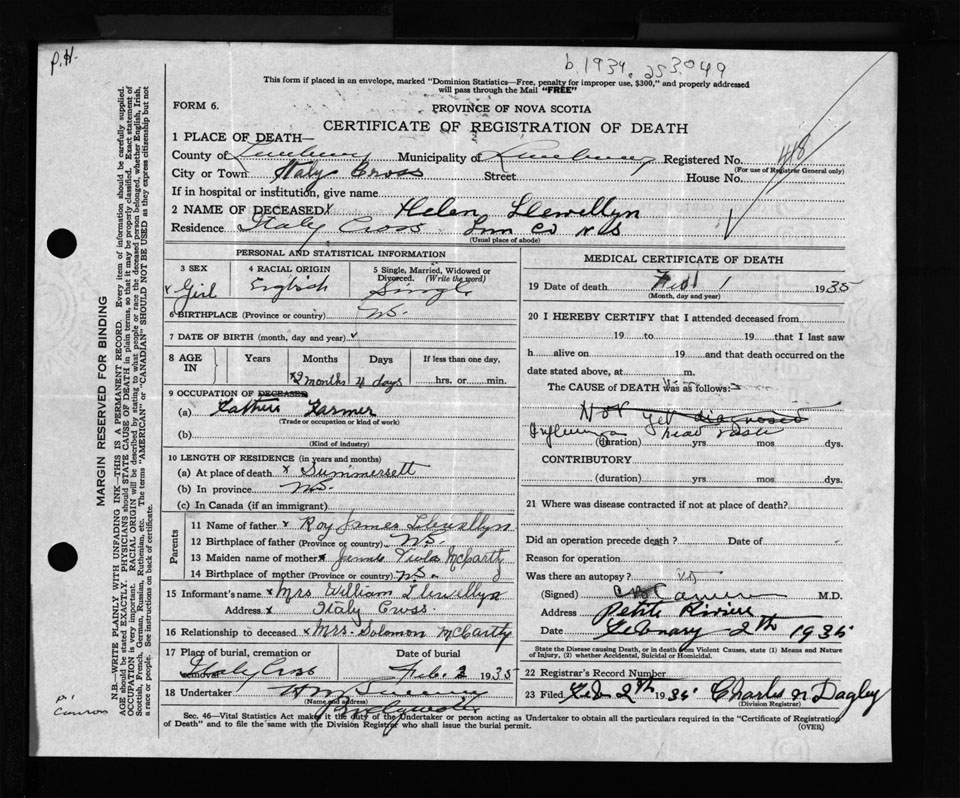 P.H.
b. 1934. 253049
This form if placed in an envelope, marked "Dominion Statistics—Free, penalty for improper use, $300," and properly addressed
will pass through the Mail "FREE"
FORM 6.
PROVINCE OF NOVA SCOTIA
CERTIFICATE OF REGISTRATION OF DEATH
1 PLACE OF DEATH—
County of Lunenburg Municipality of Lunenburg Registered No. 418
(For use of Registrar General only)
City or Town Italy Cross Street House No.
If in hospital or institution, give name
2 NAME OF DECEASED x Helen Llewellyn
Residence Italy Cross Lun Co N S
(Usual place of abode)
PERSONAL AND STATISTICAL INFORMATION
3 SEX Girl
4 RACIAL ORIGIN English
5 Single, Married, Widowed or Divorced. (Write the word) Single
6 BIRTHPLACE (Province or country) N.S.
7 DATE OF BIRTH (month, day and year)
8 AGE IN Years Months Days If less than one day,
9 months 4 days hrs. or min.
9 OCCUPATION OF DECEASED
(a) Fathers Farmer
(Trade or occupation or kind of work)
(b)
(Kind of industry)
10 LENGTH OF RESIDENCE (in years and months)
(a) At place of death x Summersett
(b) In province N.S.
(c) In Canada (if an immigrant)
Parents
11 Name of father x Roy James Llewellyn
12 Birthplace of father (Province or country) N.S.
13 Maiden name of mother x Jennie Viola McCarty
14 Birthplace of mother (Province or country) N.S.
15 Informant's name x Mrs William Llewellyn
Address x Italy Cross.
16 Relationship to deceased x Mrs. Solomon McCarty
17 Place of burial, cremation or removal Date of burial
Italy Cross Feb. 2 1935
18 Undertaker
(Name and address)
Bridgewater
MEDICAL CERTIFICATE OF DEATH
19 Date of death Feb 1 1935
(Month, day and year)
20 I HEREBY CERTIFY that I attended deceased from
19 to 19 that I last saw
h alive on 19 and that death occurred on the
date stated above, at m.
The CAUSE of DEATH was as follows:
Not yet diagnosed
Influenza
(duration) yrs. mos. dys.
CONTRIBUTORY
(duration) yrs. mos. dys.
21 Where was disease contracted if not at place of death?
Did an operation precede death? Date of
Reason for operation
Was there an autopsy?
(Signed) M.D.
Address Petite Riviere
Date February 2th 1935
State the Disease causing Death, or in death from Violent Causes, state (1) Means and Nature
of Injury, (2) whether Accidental, Suicidal or Homicidal.
22 Registrar's Record Number
23 Filed Feb 2th 1935 Charles N Dagley
(Division Registrar)
Sec. 46—Vital Statistics Act makes it the duty of the Undertaker or person acting as Undertaker to obtain all the particulars required in the "Certificate of Registration
of Death" and to file the same with the Division Registrar who shall issue the burial permit.
(OVER)
MARGIN RESERVED FOR BINDING
N.B.—WRITE PLAINLY WITH UNFADING INK—THIS IS A PERMANENT RECORD. Every item of information should be carefully supplied.
AGE should be stated EXACTLY. PHYSICIANS should STATE CAUSE OF DEATH in plain terms, so that it may be properly classified. Exact statement of
OCCUPATION is very important. RACIAL ORIGIN will be described by stating to what people or race the deceased person belonged, whether English, Irish,
Scottish, French, German, Russian, Ruthenian, etc. The terms "AMERICAN" or "CANADIAN" SHOULD NOT BE USED as they express citizenship but not
a race or people. See instructions on back of certificate.